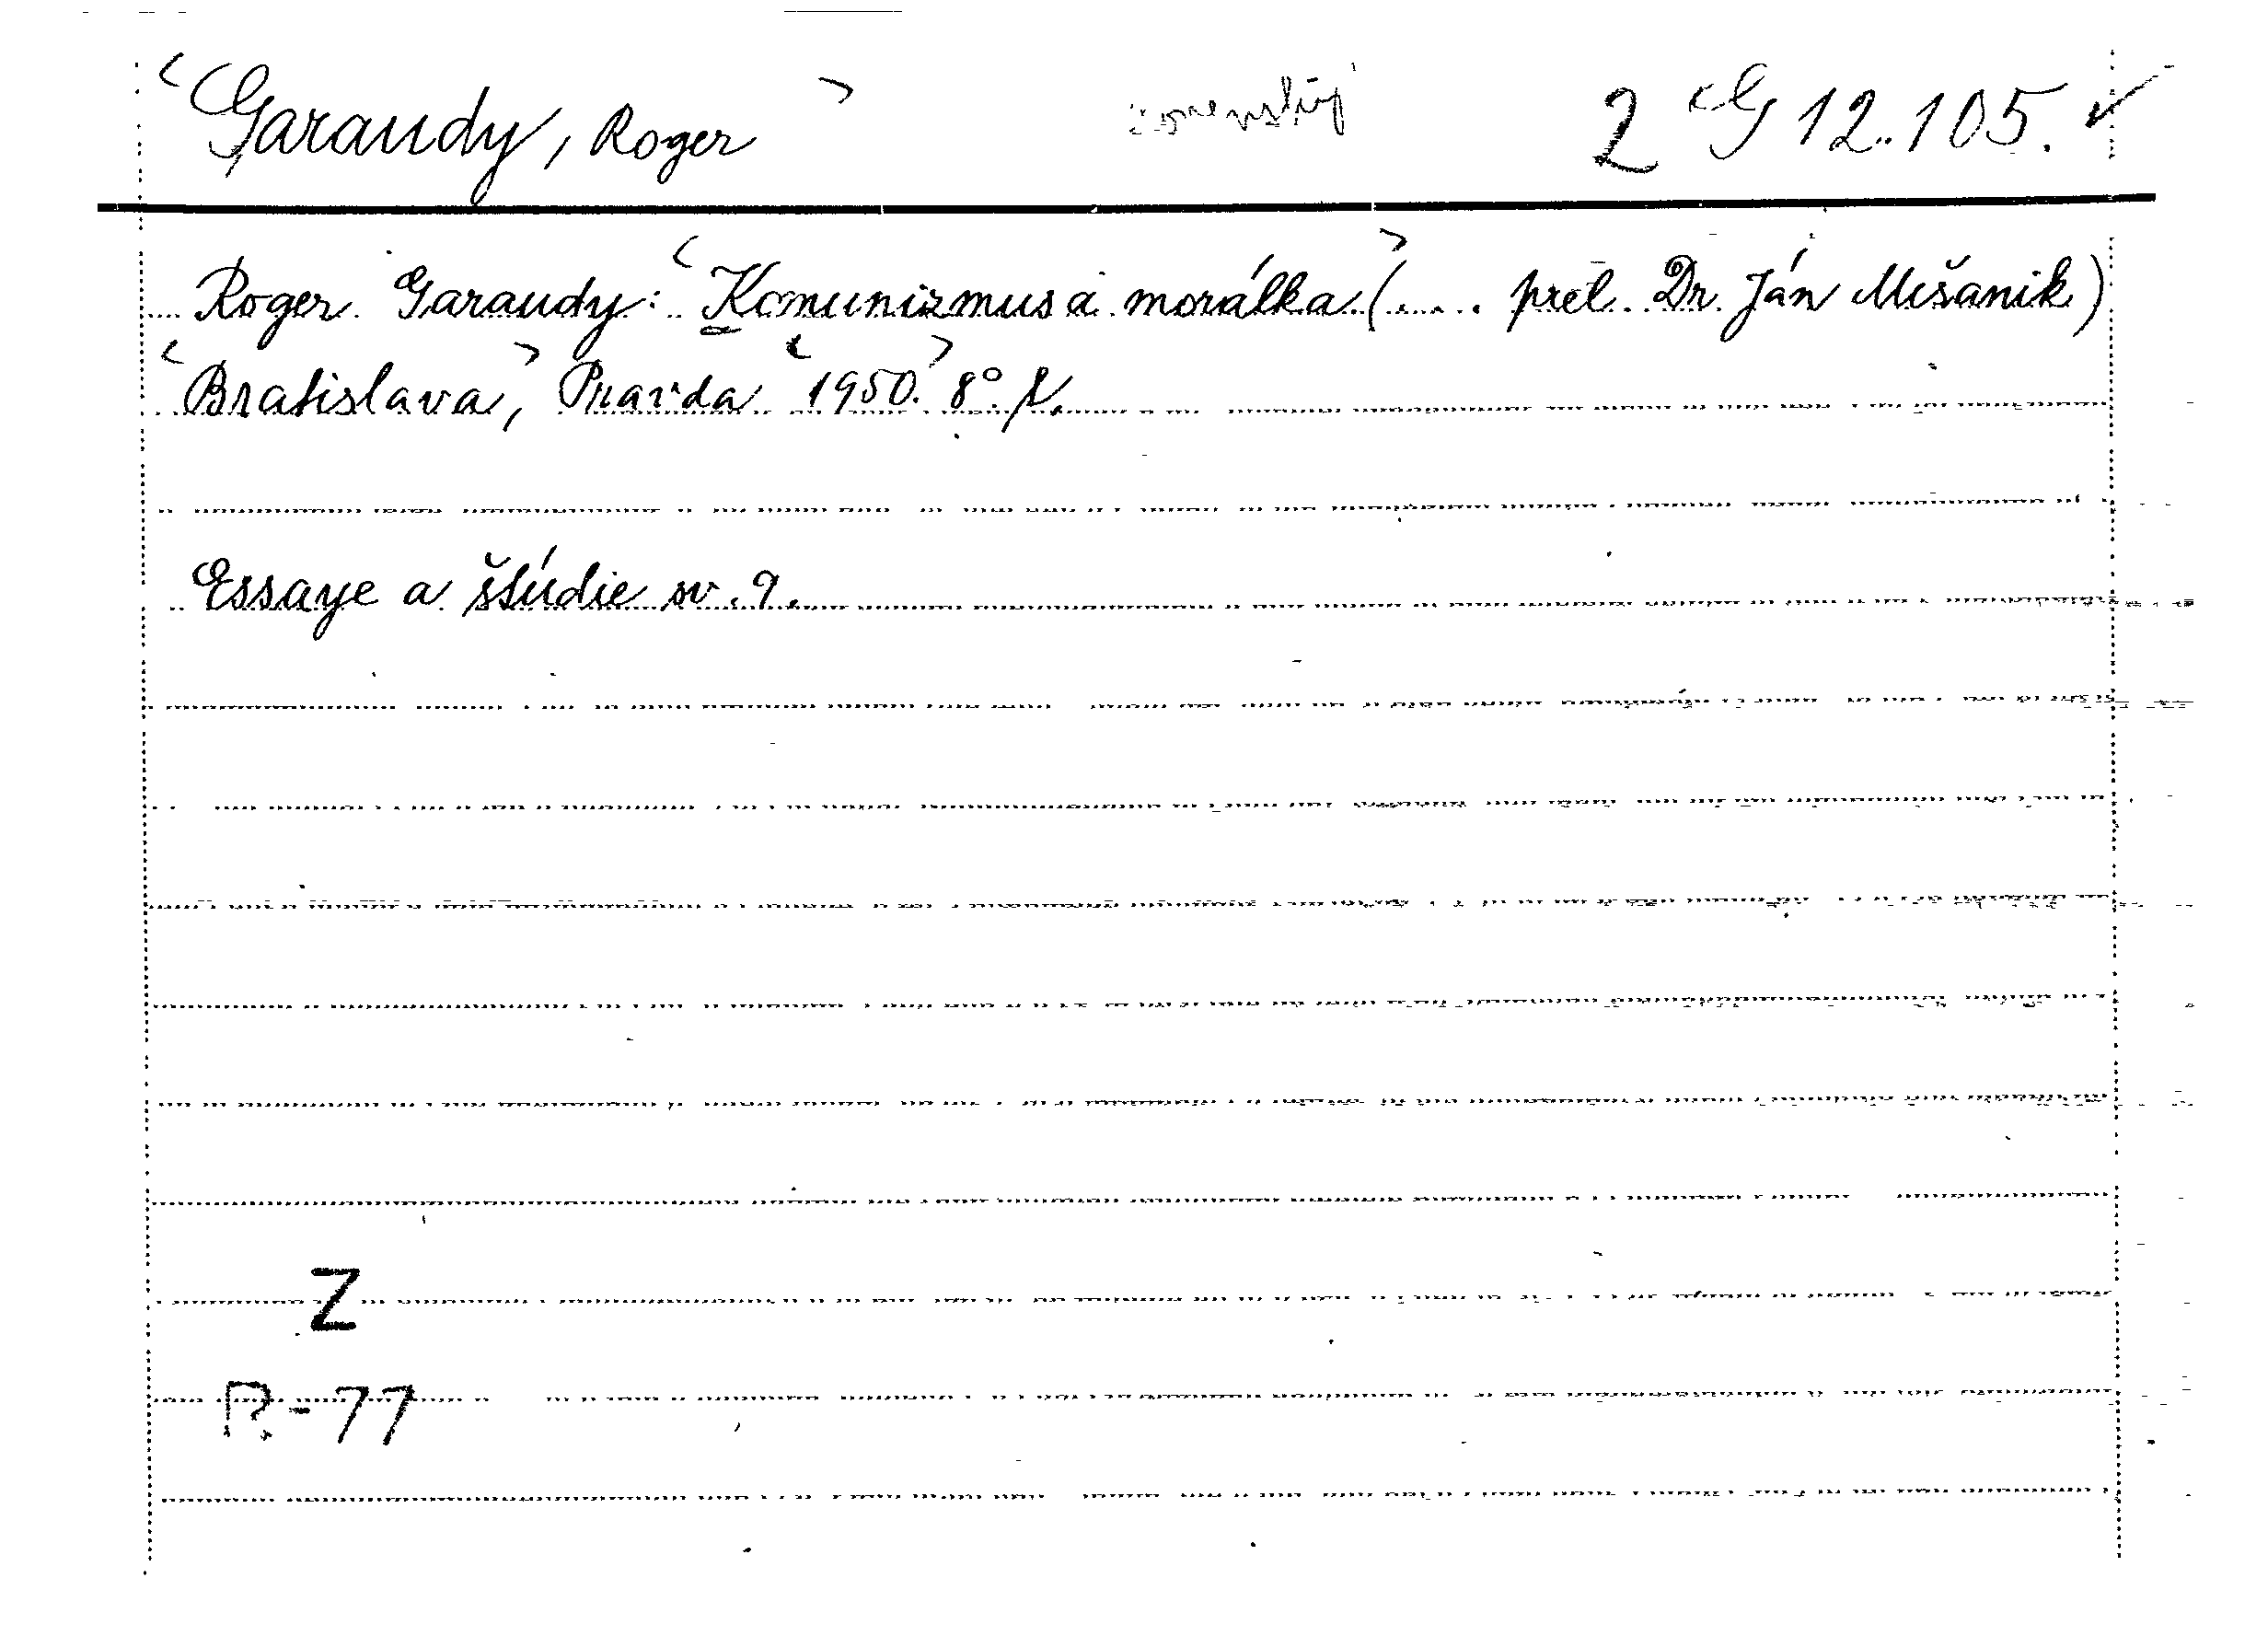 <Garaudy, Roger> 2 G 12.105. ✓
Roger Garaudy: <Komunizmus a morálka> (.... prel. Dr. Ján Mišanik)
<Bratislava,> Pravda <1950.> 8°.
Essaye a štúdie sv. 9.
Z
P.-77